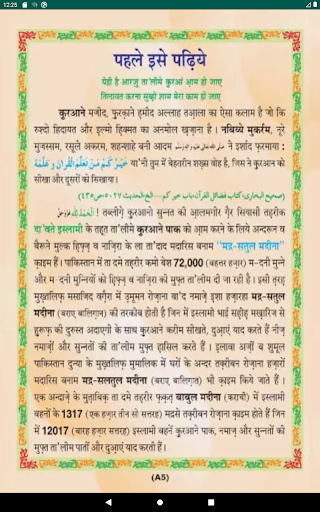 12:25
पहले इसे पढ़िये
येही है आरज़ू ता'लीमे क़ुरआं आ़म हो जाए
तिलावत करना सुब्ह़ो शाम मेरा काम हो जाए
क़ुरआने मजीद, फ़ुरक़ाने ह़मीद अल्लाह तआ़ला का ऐसा कलाम है जो कि
रुश्दो हिदायत और इ़ल्मो ह़िक्मत का अनमोल ख़ज़ाना है। नबिय्ये मुकर्रम, नूरे
मुजस्सम, रसूले अकरम, शहन्शाहे बनी आदम صلى الله عليه وسلم ने इर्शाद फ़रमाया :
خَيْرُكُمْ مَنْ تَعَلَّمَ الْقُرْآنَ وَعَلَّمَهُ या'नी तुम में बेहतरीन शख़्स वोह है, जिस ने क़ुरआन को
सीखा और दूसरों को सिखाया।
(صحيح البخاري، كتاب فضائل القرآن، باب خيركم...الخ، الحديث ٥٠٢٧، ص ٤٣٥)
الْحَمْدُ لِلّٰه عَزَّوَجَلَّ ! तब्लीग़े क़ुरआनो सुन्नत की आ़लमगीर ग़ैर सियासी तह़रीक
दा'वते इस्लामी के तह़त ता'लीमे क़ुरआने पाक को आ़म करने के लिये अन्दरून व
बैरूने मुल्क ह़िफ़्ज़ व नाज़िरा के ला ता'दाद मदारिस बनाम “मद्र-सतुल मदीना”
क़ाइम हैं। पाकिस्तान में ता दमे तह़रीर कमो बेश 72,000 (बहत्तर हज़ार) म-दनी मुन्ने
और म-दनी मुन्नियों को ह़िफ़्ज़ व नाज़िरा की मुफ़्त ता'लीम दी जा रही है। इसी त़रह़
मुख़्तलिफ़ मसाजिद वग़ैरा में उ़मूमन रोज़ाना बा'द नमाज़े इ़शा हज़ारहा मद्र-सतुल
मदीना (बराए बालिग़ान) की तरकीब होती है जिन में इस्लामी भाई सह़ीह़ मख़ारिज से
ह़ुरूफ़ की दुरुस्त अदाएगी के साथ क़ुरआने करीम सीखते, दुआ़एं याद करते हैं नीज़
नमाज़ों और सुन्नतों की ता'लीम मुफ़्त ह़ासिल करते हैं। इलावा अज़ीं व शुमूल
पाकिस्तान दुन्या के मुख़्तलिफ़ मुमालिक में घरों के अन्दर तक़रीबन रोज़ाना हज़ारों
मदारिस बनाम मद्र-सलतुल मदीना (बराए बालिग़ात) भी क़ाइम किये जाते हैं।
एक अन्दाज़े के मुत़ाबिक़ ता दमे तह़रीर फ़क़त़ बाबुल मदीना (कराची) में इस्लामी
बहनों के 1317 (एक हज़ार तीन सो सत्तरह) मद्रसे तक़रीबन रोज़ाना क़ाइम होते हैं जिन
में 12017 (बारह हज़ार सत्तरह) इस्लामी बहनें क़ुरआने पाक, नमाज़ और सुन्नतों की
मुफ़्त ता'लीम पातीं और दुआ़एं याद करती हैं।
(A5)